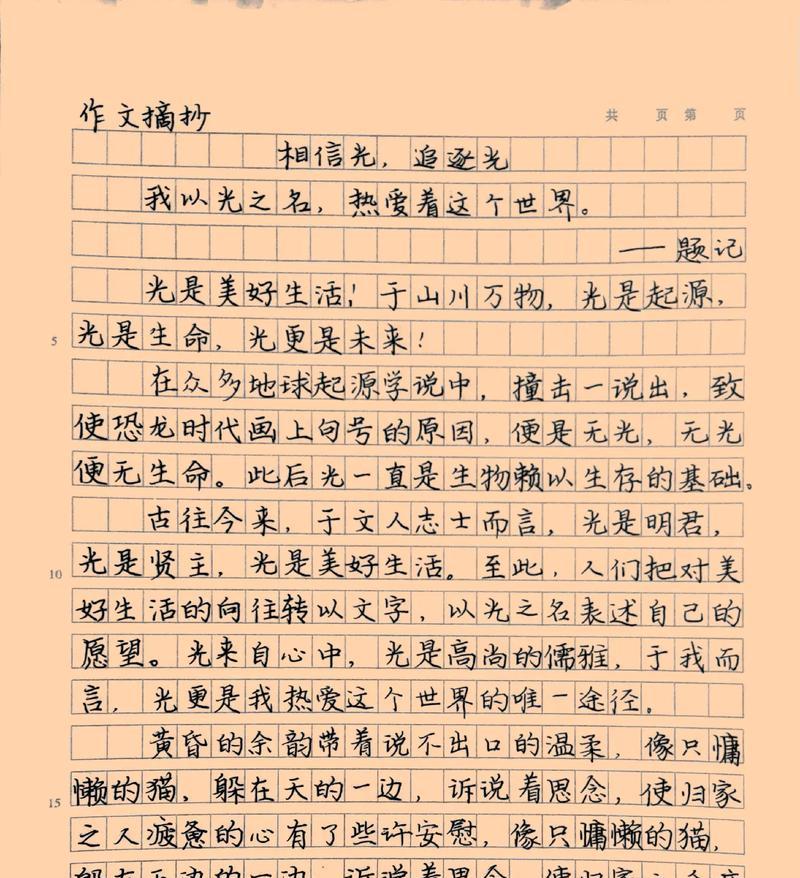 作文摘抄
共 页 第 页
相信光，追逐光
我以光之名，热爱着这个世界。
——题记
光是美好生活！于山川万物，光是起源，
5 光是生命，光更是未来！
在众多地球起源学说中，撞击一说出，致
使恐龙时代画上句号的原因，便是无光，无光
便无生命。此后光一直是生物赖以生存的基础。
古往今来，于文人志士而言，光是明君，
10 光是贤主，光是美好生活。至此，人们把对美
好生活的向往转以文字，以光之名表述自己的
愿望。光来自心中，光是高尚的儒雅，于我而
言，光更是我热爱这个世界的唯一途径。
黄昏的余韵带着说不出口的温柔，像只慵
15 懒的猫，躲在天的一边，诉说着思念，使归家
之人疲惫的心有了些许安慰，像只慵懒的猫，
的一边，诉说着思念，使归家之